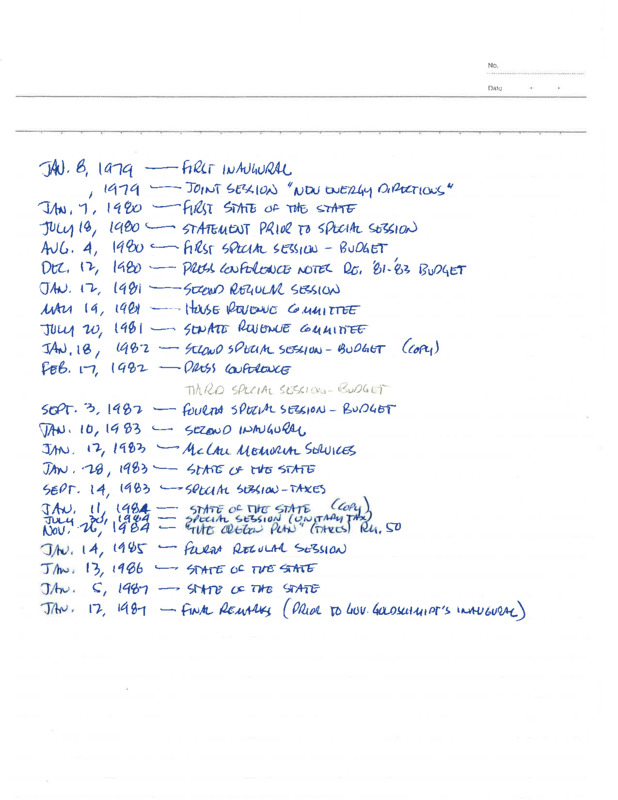 No.
Date
JAN. 8, 1979 — FIRST INAUGURAL
, 1979 — JOINT SESSION "NEW ENERGY DIRECTIONS"
JAN. 7, 1980 — FIRST STATE OF THE STATE
JULY 18, 1980 — STATEMENT PRIOR TO SPECIAL SESSION
AUG. 4, 1980 — FIRST SPECIAL SESSION - BUDGET
DEC. 12, 1980 — PRESS CONFERENCE NOTES RE. '81-'83 BUDGET
JAN. 12, 1981 — SECOND REGULAR SESSION
MAY 19, 1981 — HOUSE REVENUE COMMITTEE
JULY 20, 1981 — SENATE REVENUE COMMITTEE
JAN. 18, 1982 — SECOND SPECIAL SESSION - BUDGET (COPY)
FEB. 17, 1982 — PRESS CONFERENCE
THIRD SPECIAL SESSION - BUDGET
SEPT. 3, 1982 — FOURTH SPECIAL SESSION - BUDGET
JAN. 10, 1983 — SECOND INAUGURAL
JAN. 12, 1983 — McCALL MEMORIAL SERVICES
JAN. 28, 1983 — STATE OF THE STATE
SEPT. 14, 1983 — SPECIAL SESSION - TAXES
JAN. 11, 1984 — STATE OF THE STATE (COPY)
JULY 30, 1984 — SPECIAL SESSION (UNITARY TAX)
NOV. 26, 1984 — "THE OREGON PLAN" (TAXES) RM. 50
JAN. 14, 1985 — FOURTH REGULAR SESSION
JAN. 13, 1986 — STATE OF THE STATE
JAN. 5, 1987 — STATE OF THE STATE
JAN. 12, 1987 — FINAL REMARKS (PRIOR TO GOV. GOLDSCHMIDT'S INAUGURAL)